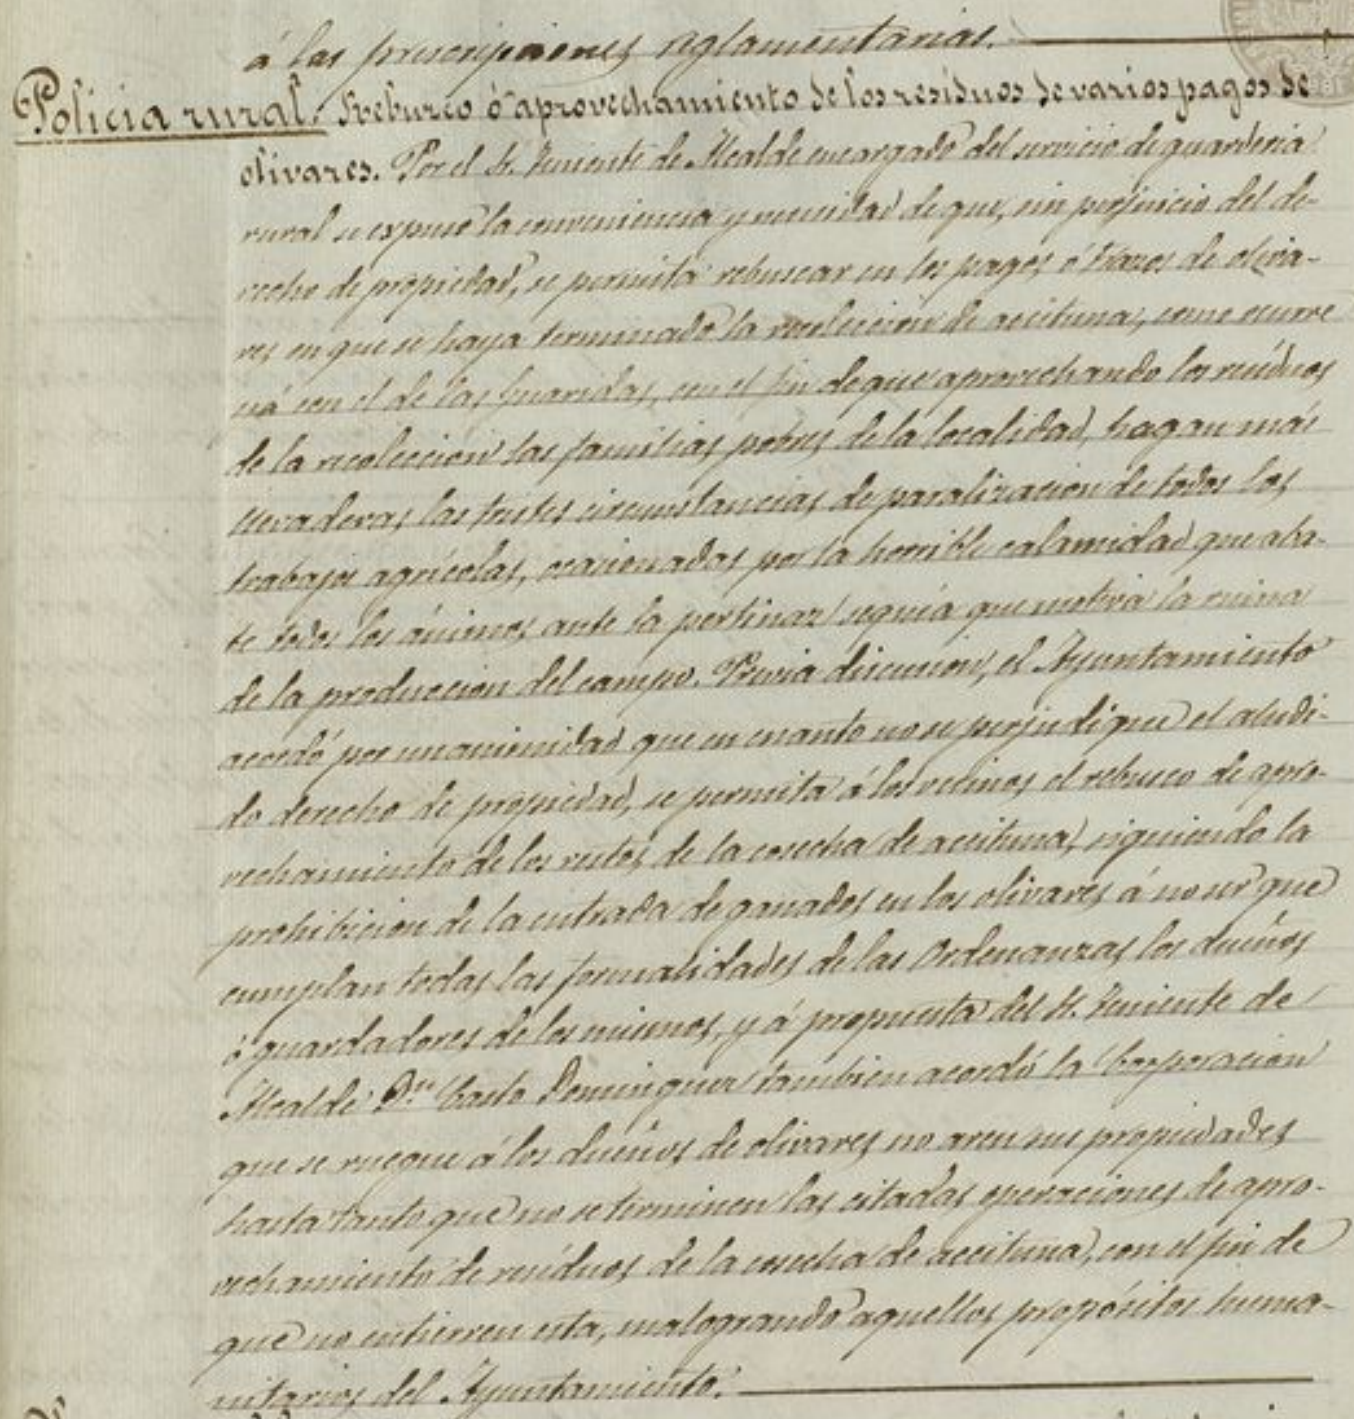 á las prescripciones reglamentarias.
Policia rural. Rebusco ó aprovechamiento de los residuos de varios pagos de
olivares. Por el Sr. Teniente de Alcalde encargado del servicio de guarderia
rural se expuso la conveniencia y necesidad de que, sin perjuicio del de-
recho de propiedad, se permita rebuscar en los pagos ó trazos de oliva-
res en que se haya terminado la recolección de aceituna, como ocurre
yá con el de las Guaridas, con el fin de que aprovechando los residuos
de la recolección las familias pobres de la localidad, hagan más
llevaderas las tristes circunstancias de paralizacion de todos los
trabajos agrícolas, ocasionadas por la horrible calamidad que aba-
te todos los ánimos ante la pertinaz sequía que motiva la ruina
de la produccion del campo. Previa discusion, el Ayuntamiento
acordó por unanimidad que en cuanto no se perjudique el aludi-
do derecho de propiedad, se permita á los vecinos el rebusco de apro-
vechamiento de los restos de la cosecha de aceituna, siguiendo la
prohibicion de la entrada de ganados en los olivares á no ser que
cumplan todas las formalidades de las Ordenanzas los dueños
ó guardadores de los mismos, y á propuesta del Sr. Teniente de
Alcalde Dn. Casto Dominguez tambien acordó la Corporacion
que se ruegue á los dueños de olivares no aren sus propiedades
hasta tanto que no se terminen las citadas operaciones de apro-
vechamiento de residuos de la cosecha de aceituna, con el fin de
que no entierren esta, malogrando aquellos propósitos huma-
nitarios del Ayuntamiento.